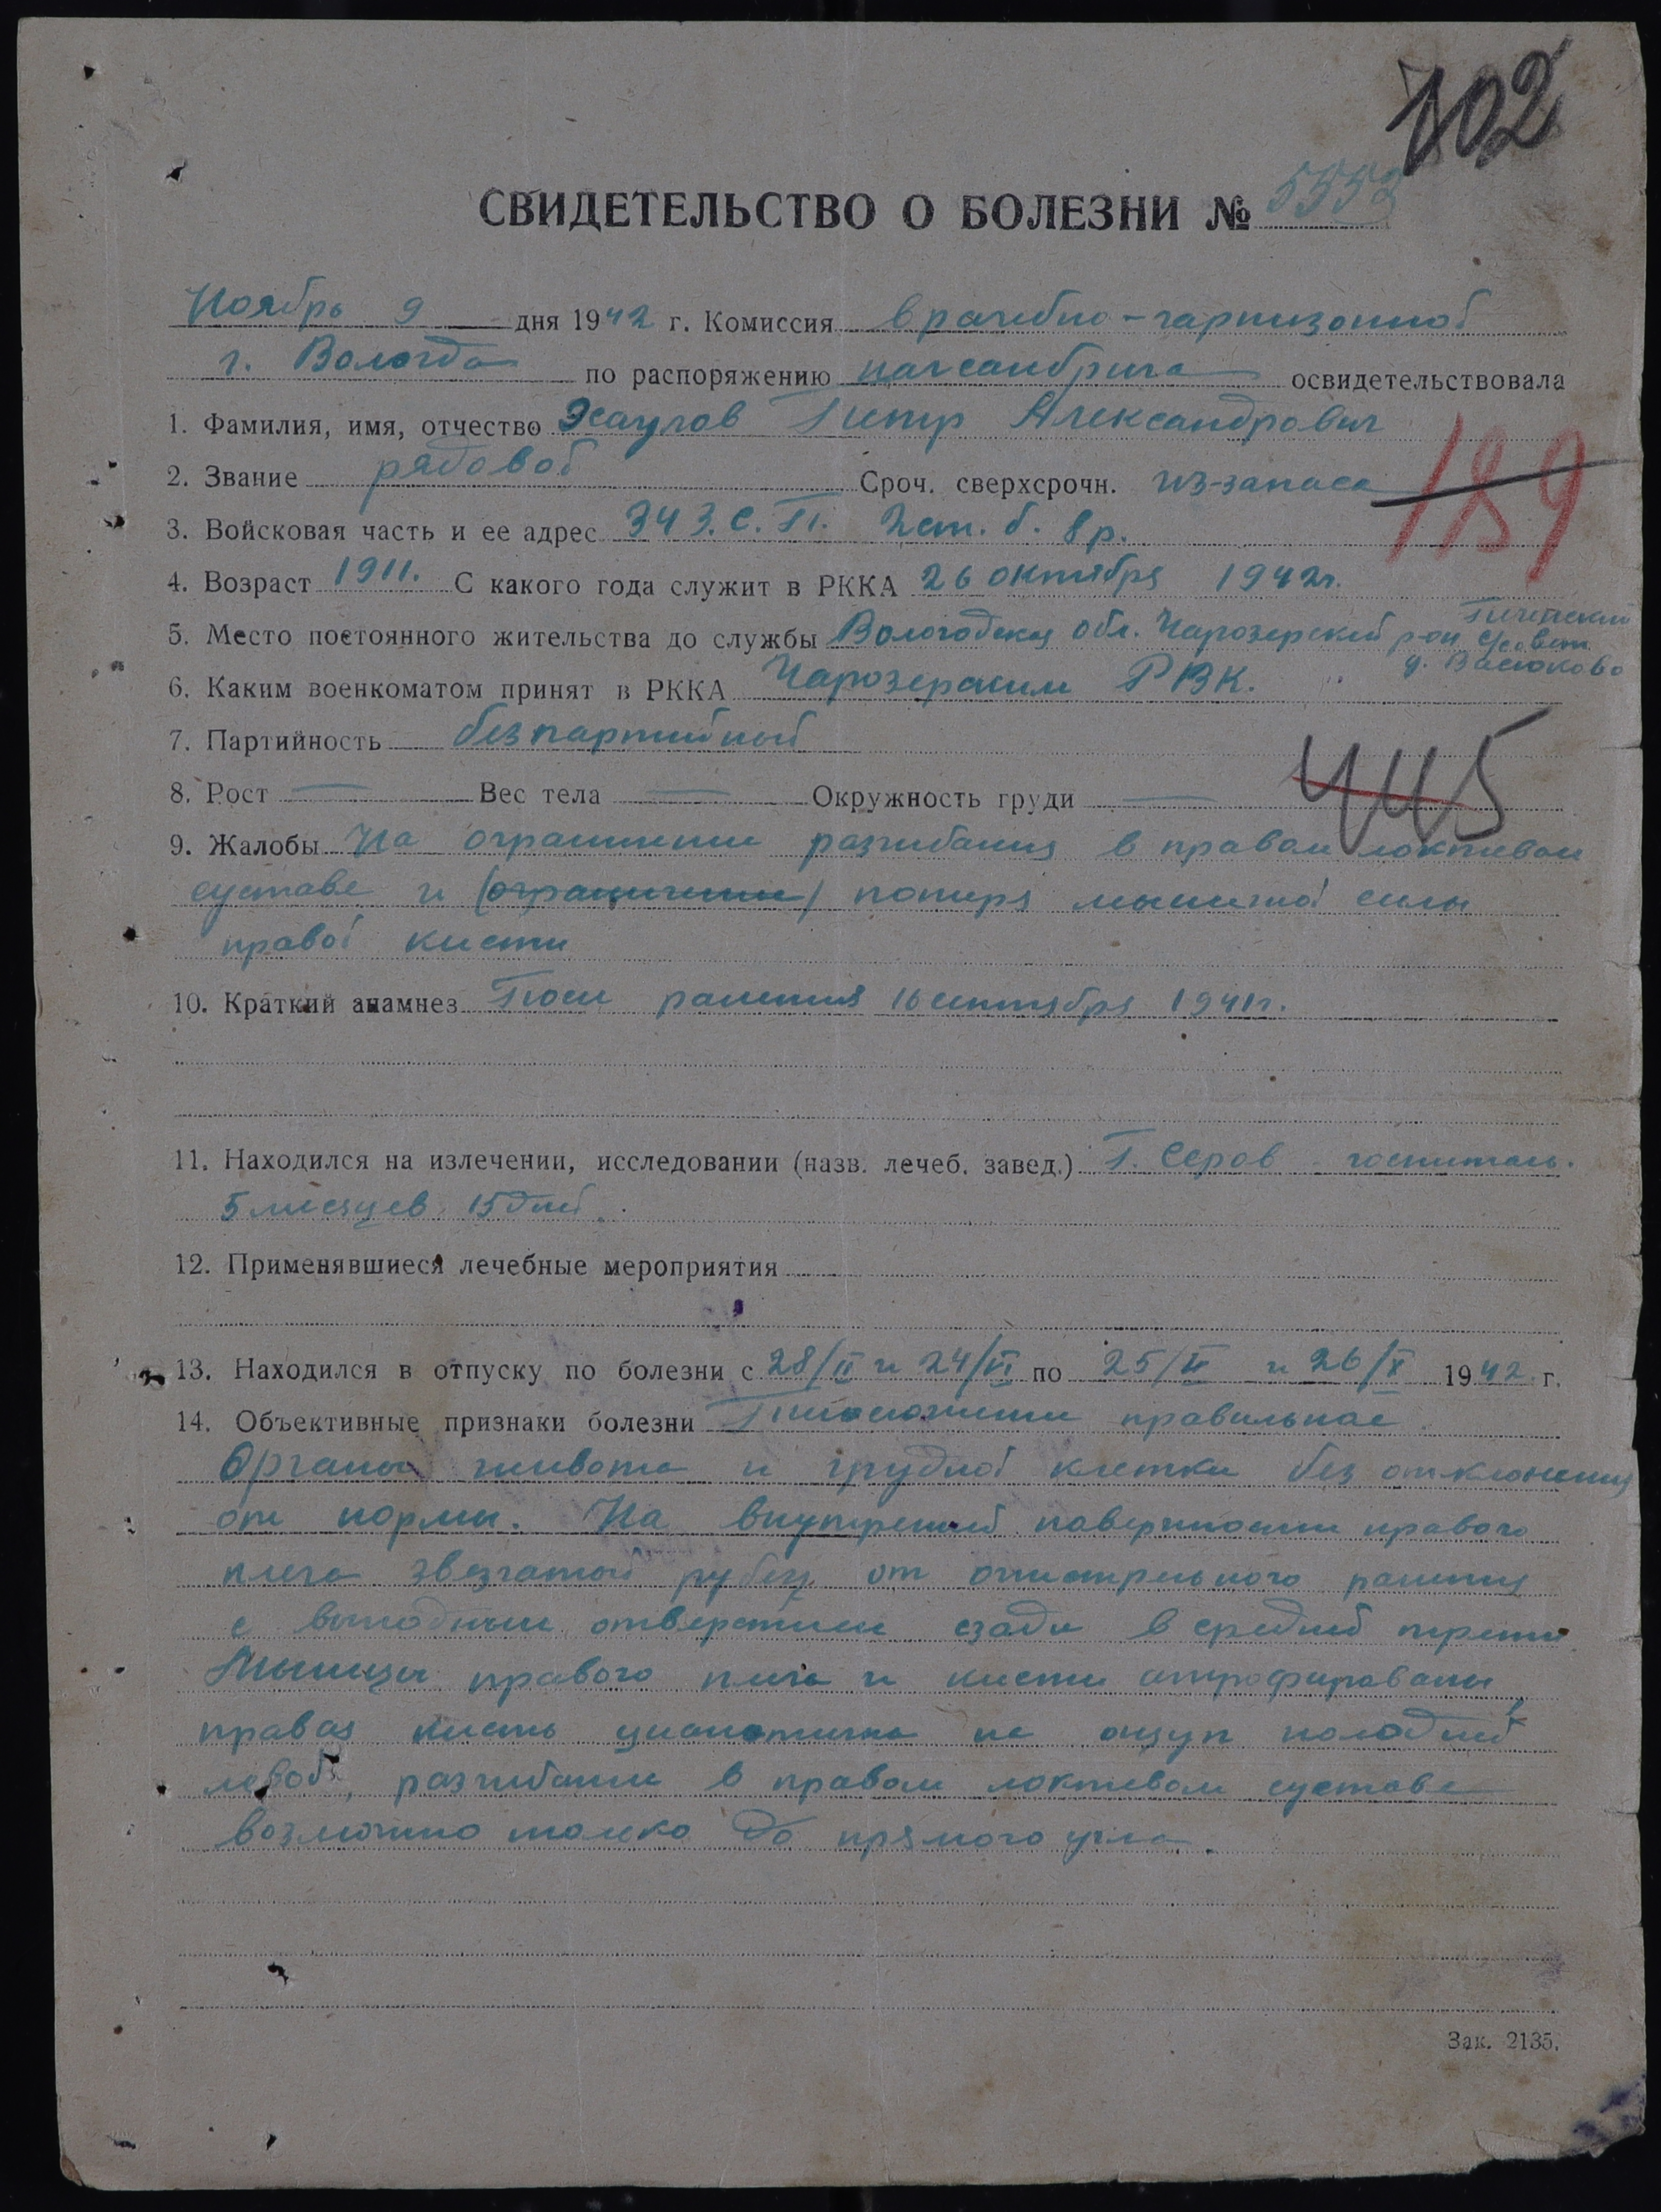 102
СВИДЕТЕЛЬСТВО О БОЛЕЗНИ № 5552
Ноябрь 9 дня 1942 г. Комиссия врачебно-гарнизонной
г. Вологда по распоряжению начсанбрига освидетельствовала
1. Фамилия, имя, отчество Петр Александрович
189
2. Звание рядовой Сроч. сверхсрочн. из-запаса
3. Войсковая часть и ее адрес 343. С. П. 2 ст. б. 8 р.
4. Возраст 1911. С какого года служит в РККА 26 октября 1942 г.
5. Место постоянного жительства до службы Вологодская обл. Чарозерский р-он. совет д. Васюково
6. Каким военкоматом принят в РККА Чарозерским РВК.
7. Партийность безпартийный
445
8. Рост — Вес тела — Окружность груди —
9. Жалобы На ограничение разгибания в правом локтевом
суставе и (ограничение) потеря мышечной силы
правой кисти
10. Краткий анамнез После ранения 16 сентября 1941 г.
11. Находился на излечении, исследовании (назв. лечеб. завед.) Г. Серов госпиталь.
5 месяцев 15 дней.
12. Применявшиеся лечебные мероприятия
13. Находился в отпуску по болезни с 28/II и 24/VI по 25/V и 26/X 1942 г.
14. Объективные признаки болезни Телосложение правильное
Органы живота и грудной клетки без отклонения
от нормы. На внутренней поверхности правого
плеча звезчатый рубец от огнестрельного ранения
с выходным отверстием сзади в средней трети
Мышцы правого плеча и кисти атрофированы
правая кисть цианотична на ощуп холодней
левой, разгибание в правом локтевом суставе
возможно толеко до прямого угла.
Зак. 2135.